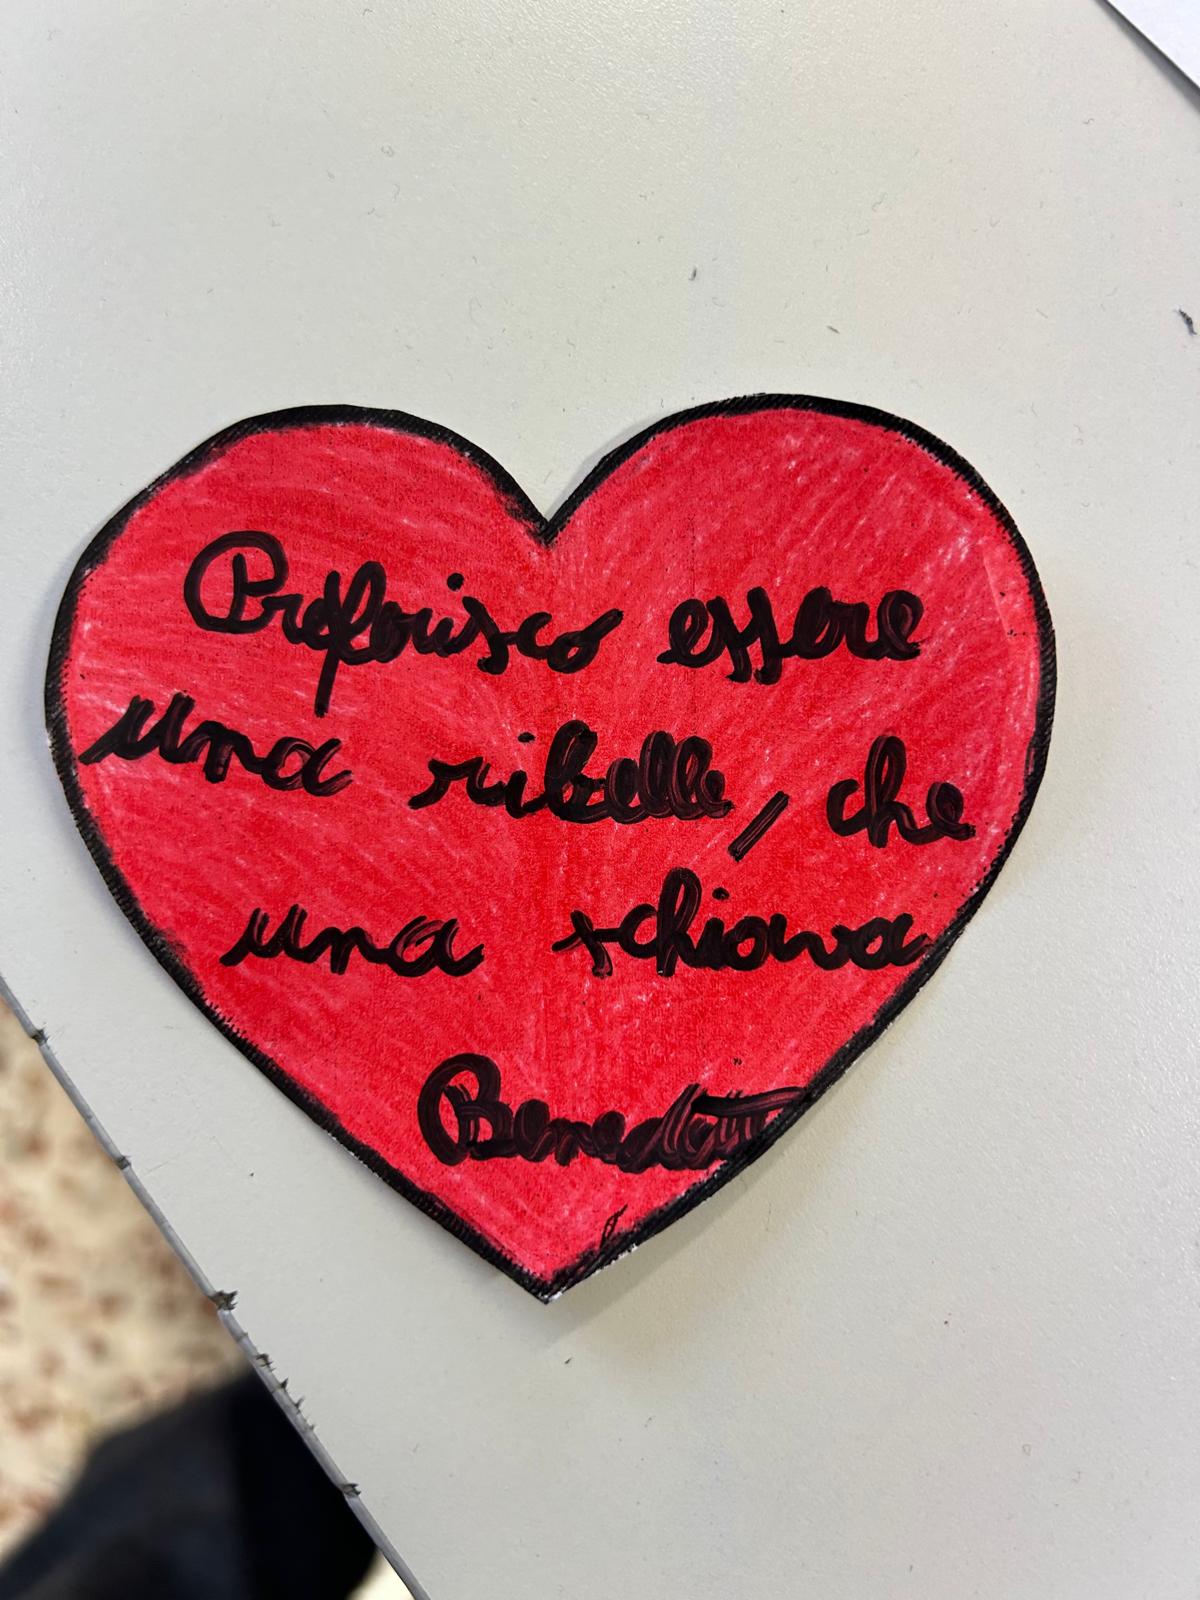 Preferisco essere
una ribelle, che
una schiava
Benedetta